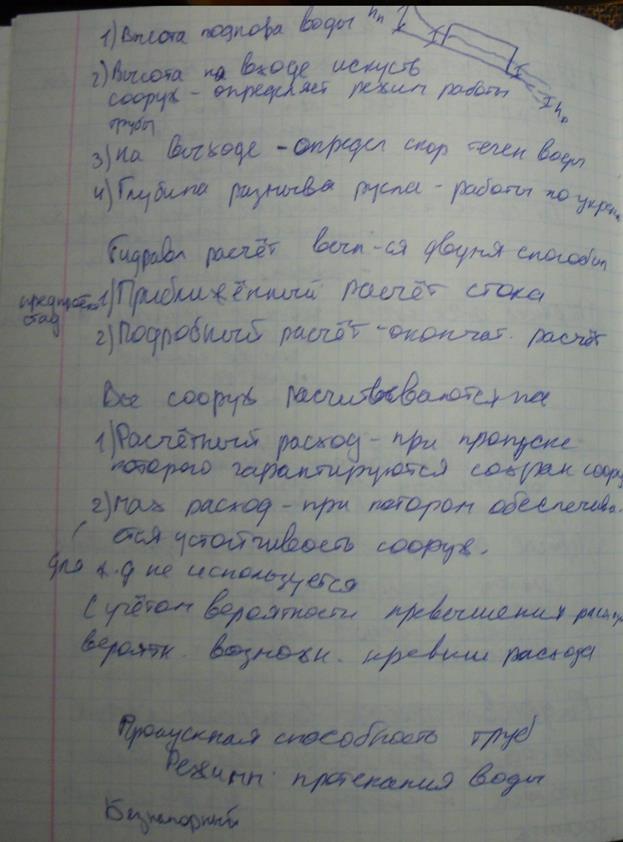 1) Высота подпора воды hп
2) Высота на входе искуств
сооруж - определяет режим работы
трубы
hп
3) На выходе - определ скор течен воды
4) Глубина размыва русла - работы по укреп
Гидравл расчёт вып-ся двумя способами
1) Приближённый расчёт стока
2) Подробный расчёт - окончат. расчёт
Все сооруж расчитываются на
1) Расчётный расход - при пропуске
которого гарантируются сохран сооруж
2) max расход - при котором обеспечива-
ется устойчивость сооруж.
для ж.д не используется
С учётом вероятности превышения расч.
вероятн. возможн. превыш расхода
Пропускная способность труб
Режимы протекания воды
Безнапорный